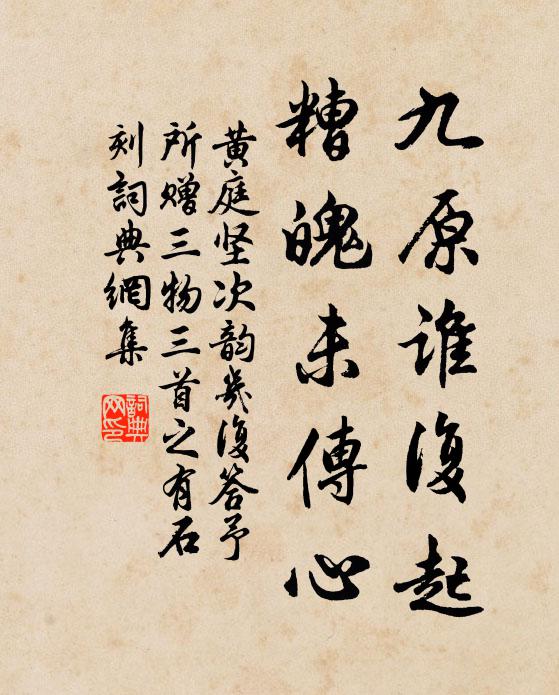 九原谁復起
糟魄未傳心
黄庭坚次韵幾復答予
所赠三物三首之有石
刻詞典網集
詞典網印